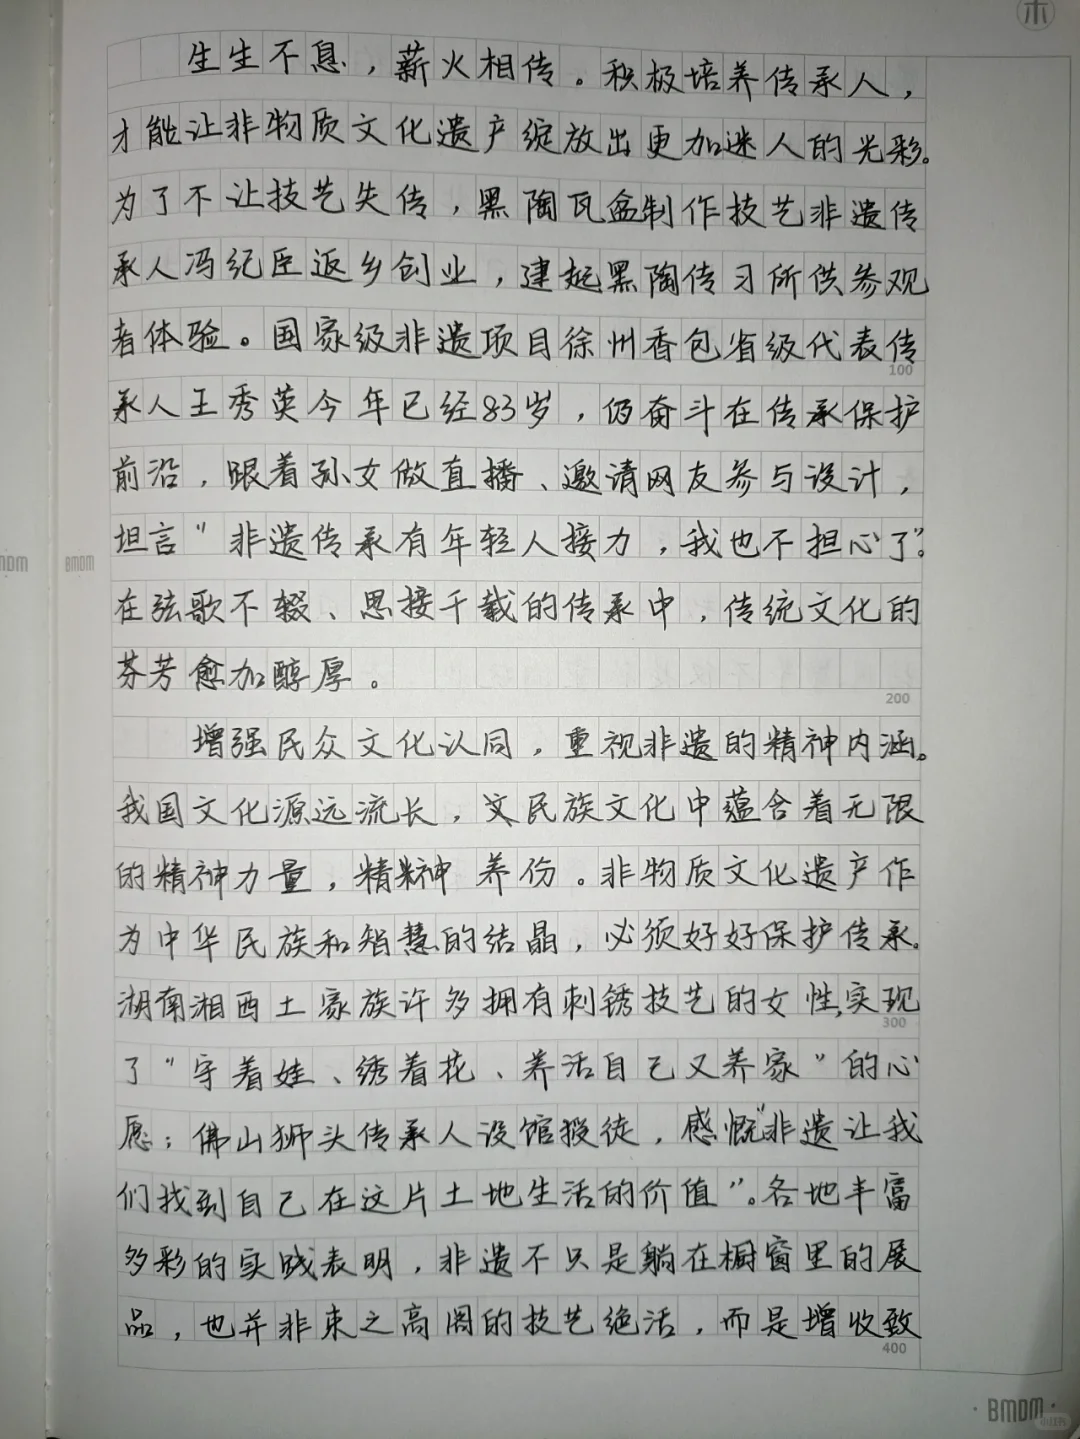 木
生生不息，薪火相传。积极培养传承人，
才能让非物质文化遗产绽放出更加迷人的光彩。
为了不让技艺失传，黑陶瓦盆制作技艺非遗传
承人冯纪臣返乡创业，建起黑陶传习所供参观
者体验。国家级非遗项目徐州香包省级代表传
100
承人王秀英今年已经83岁，仍奋斗在传承保护
前沿，跟着孙女做直播、邀请网友参与设计，
坦言“非遗传承有年轻人接力，我也不担心了”。
在弦歌不辍、思接千载的传承中，传统文化的
芬芳愈加醇厚。
200
增强民众文化认同，重视非遗的精神内涵。
我国文化源远流长，民族文化中蕴含着无限
的精神力量，精神养份。非物质文化遗产作
为中华民族和智慧的结晶，必须好好保护传承。
湖南湘西土家族许多拥有刺锈技艺的女性，实现
300
了“守着娃、绣着花、养活自己又养家”的心
愿；佛山狮头传承人设馆授徒，感慨“非遗让我
们找到自己在这片土地生活的价值”。各地丰富
多彩的实践表明，非遗不只是躺在橱窗里的展
品，也并非束之高阁的技艺绝活，而是增收致
400
BMDM
BMDM
BMDM
小红书